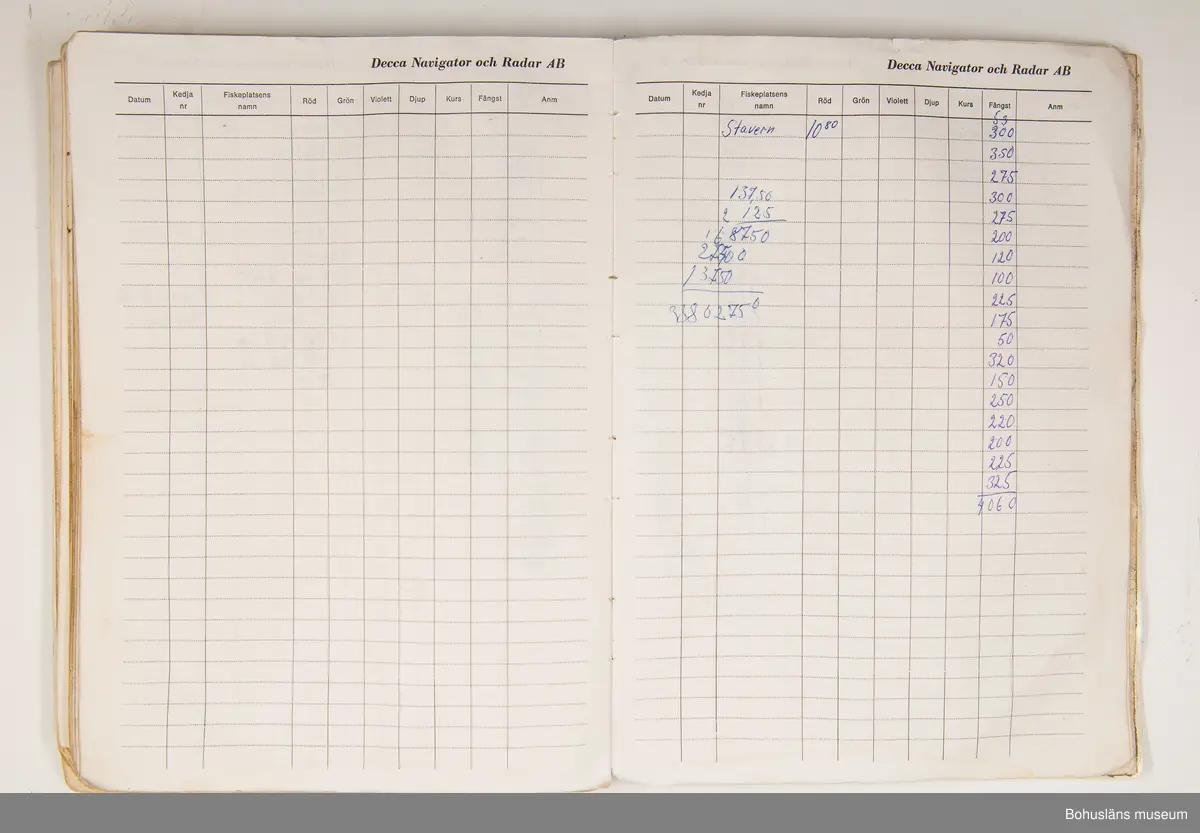 Decca Navigator och Radar AB
Datum Kedja nr Fiskeplatsens namn Röd Grön Violett Djup Kurs Fångst Anm
Decca Navigator och Radar AB
Datum Kedja nr Fiskeplatsens namn Röd Grön Violett Djup Kurs Fångst Anm
Stavern 10 80 300
350
275
137,50 300
2 125 275
8750 200
120
13750 100
225
175
50
320
150
250
220
200
225
325
4060
Bohusläns museum